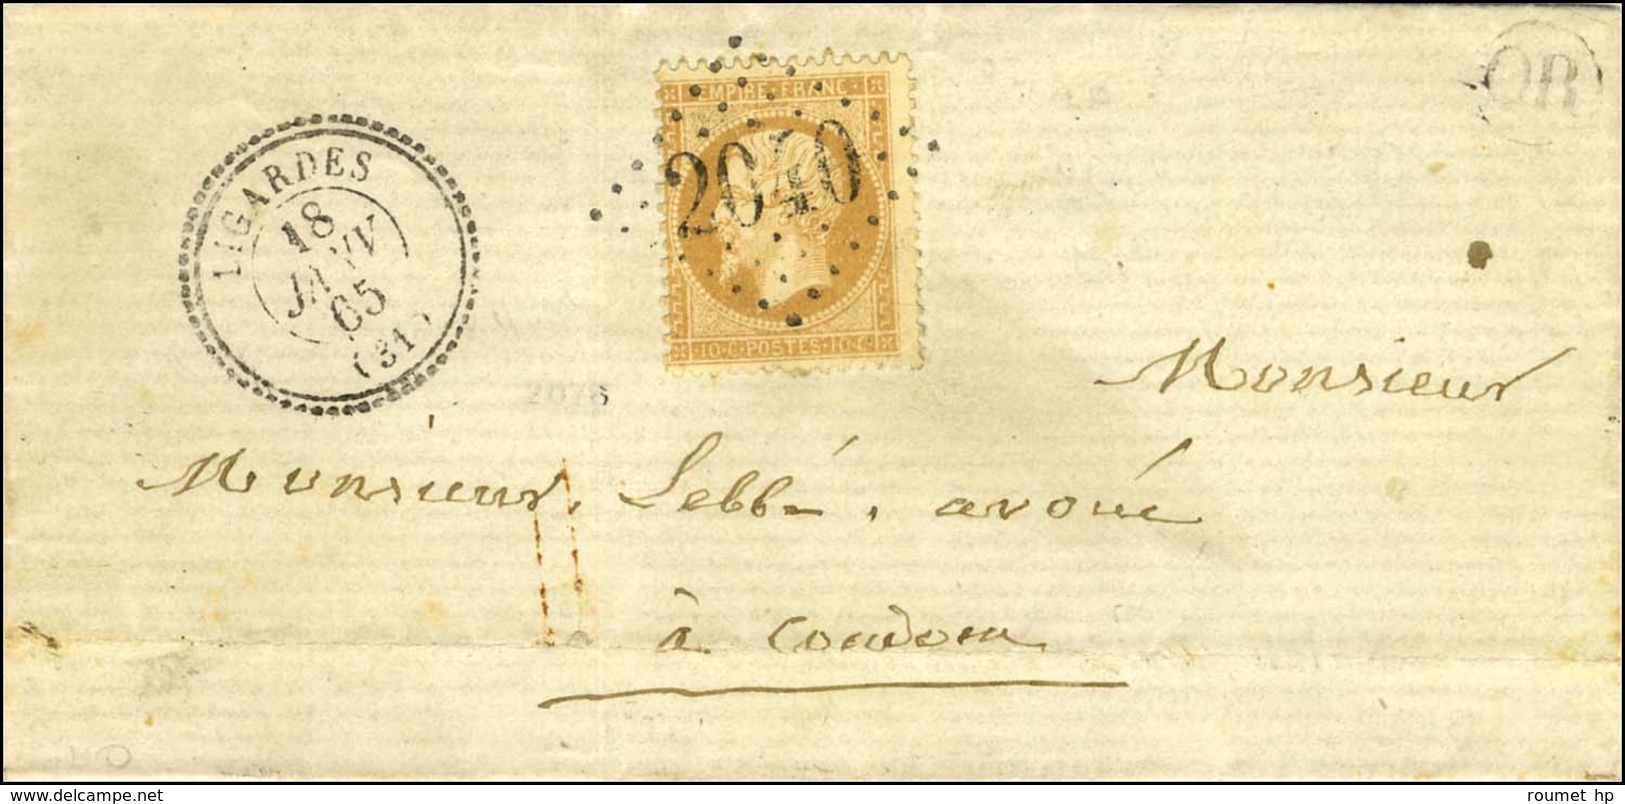 OR
EMPIRE·FRANC·
2040
LIGARDES
18
JANV
65
(31)
·10·C·POSTES·10·C·
2078
Monsieur
Monsieur Lebbé, avoué
à Condom
roumet hp